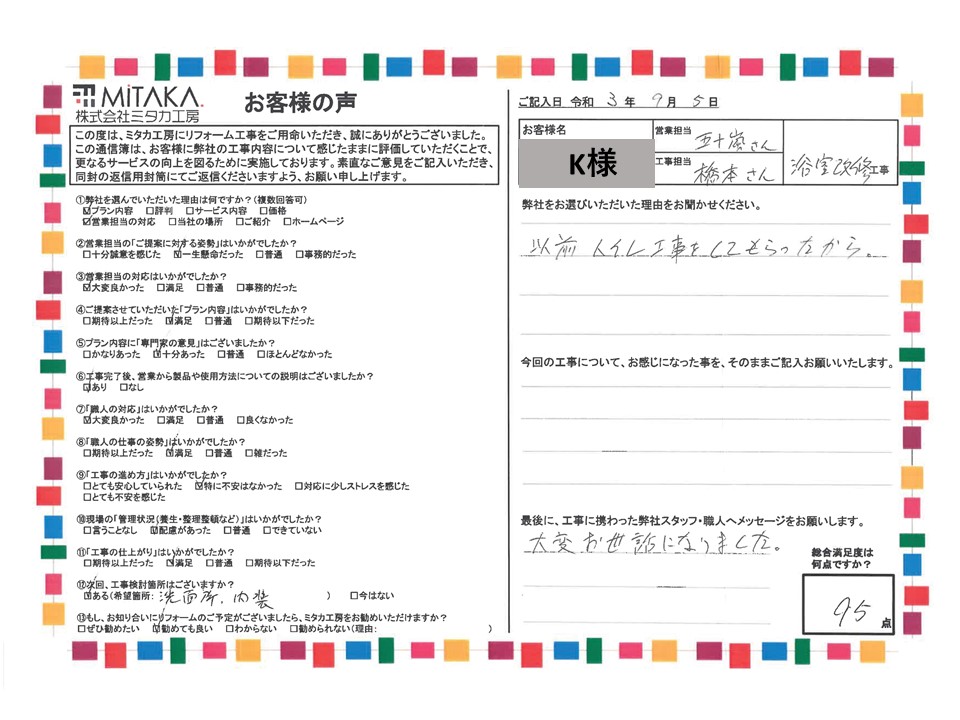 MiTAKA
株式会社ミタカ工房
お客様の声
この度は、ミタカ工房にリフォーム工事をご用命いただき、誠にありがとうございました。
この通信簿は、お客様に弊社の工事内容について感じたままに評価していただくことで、
更なるサービスの向上を図るために実施しております。素直なご意見をご記入いただき、
同封の返信用封筒にてご返信くださいますよう、お願い申し上げます。
①弊社を選んでいただいた理由は何ですか?(複数回答可)
☑プラン内容 □評判 □サービス内容 □価格
☑営業担当の対応 □当社の場所 □ご紹介 □ホームページ
②営業担当の「ご提案に対する姿勢」はいかがでしたか?
□十分誠意を感じた ☑一生懸命だった □普通 □事務的だった
③営業担当の対応はいかがでしたか?
☑大変良かった □満足 □普通 □事務的だった
④ご提案させていただいた「プラン内容」はいかがでしたか?
□期待以上だった ☑満足 □普通 □期待以下だった
⑤プラン内容に「専門家の意見」はございましたか?
□かなりあった ☑十分あった □普通 □ほとんどなかった
⑥工事完了後、営業から製品や使用方法についての説明はございましたか?
☑あり □なし
⑦「職人の対応」はいかがでしたか?
☑大変良かった □満足 □普通 □良くなかった
⑧「職人の仕事の姿勢」はいかがでしたか?
□期待以上だった ☑満足 □普通 □雑だった
⑨「工事の進め方」はいかがでしたか?
□とても安心していられた ☑特に不安はなかった □対応に少しストレスを感じた
□とても不安を感じた
⑩現場の「管理状況(養生・整理整頓など)」はいかがでしたか?
□言うことなし ☑配慮があった □普通 □できていない
⑪「工事の仕上がり」はいかがでしたか?
□期待以上だった ☑満足 □普通 □期待以下だった
⑫次回、工事検討箇所はございますか?
☑ある(希望箇所: 洗面所、内装 ) □今はない
⑬もし、お知り合いにリフォームのご予定がございましたら、ミタカ工房をお勧めいただけますか?
□ぜひ勧めたい ☑勧めても良い □わからない □勧められない(理由: )
ご記入日 令和 3 年 9 月 5 日
お客様名
K様
営業担当 五十嵐さん
工事担当 橋本さん
浴室改修工事
弊社をお選びいただいた理由をお聞かせください。
以前トイレ工事をしてもらったから。
今回の工事について、お感じになった事を、そのままご記入お願いいたします。
最後に、工事に携わった弊社スタッフ・職人へメッセージをお願いします。
大変お世話になりました。
総合満足度は
何点ですか?
95 点